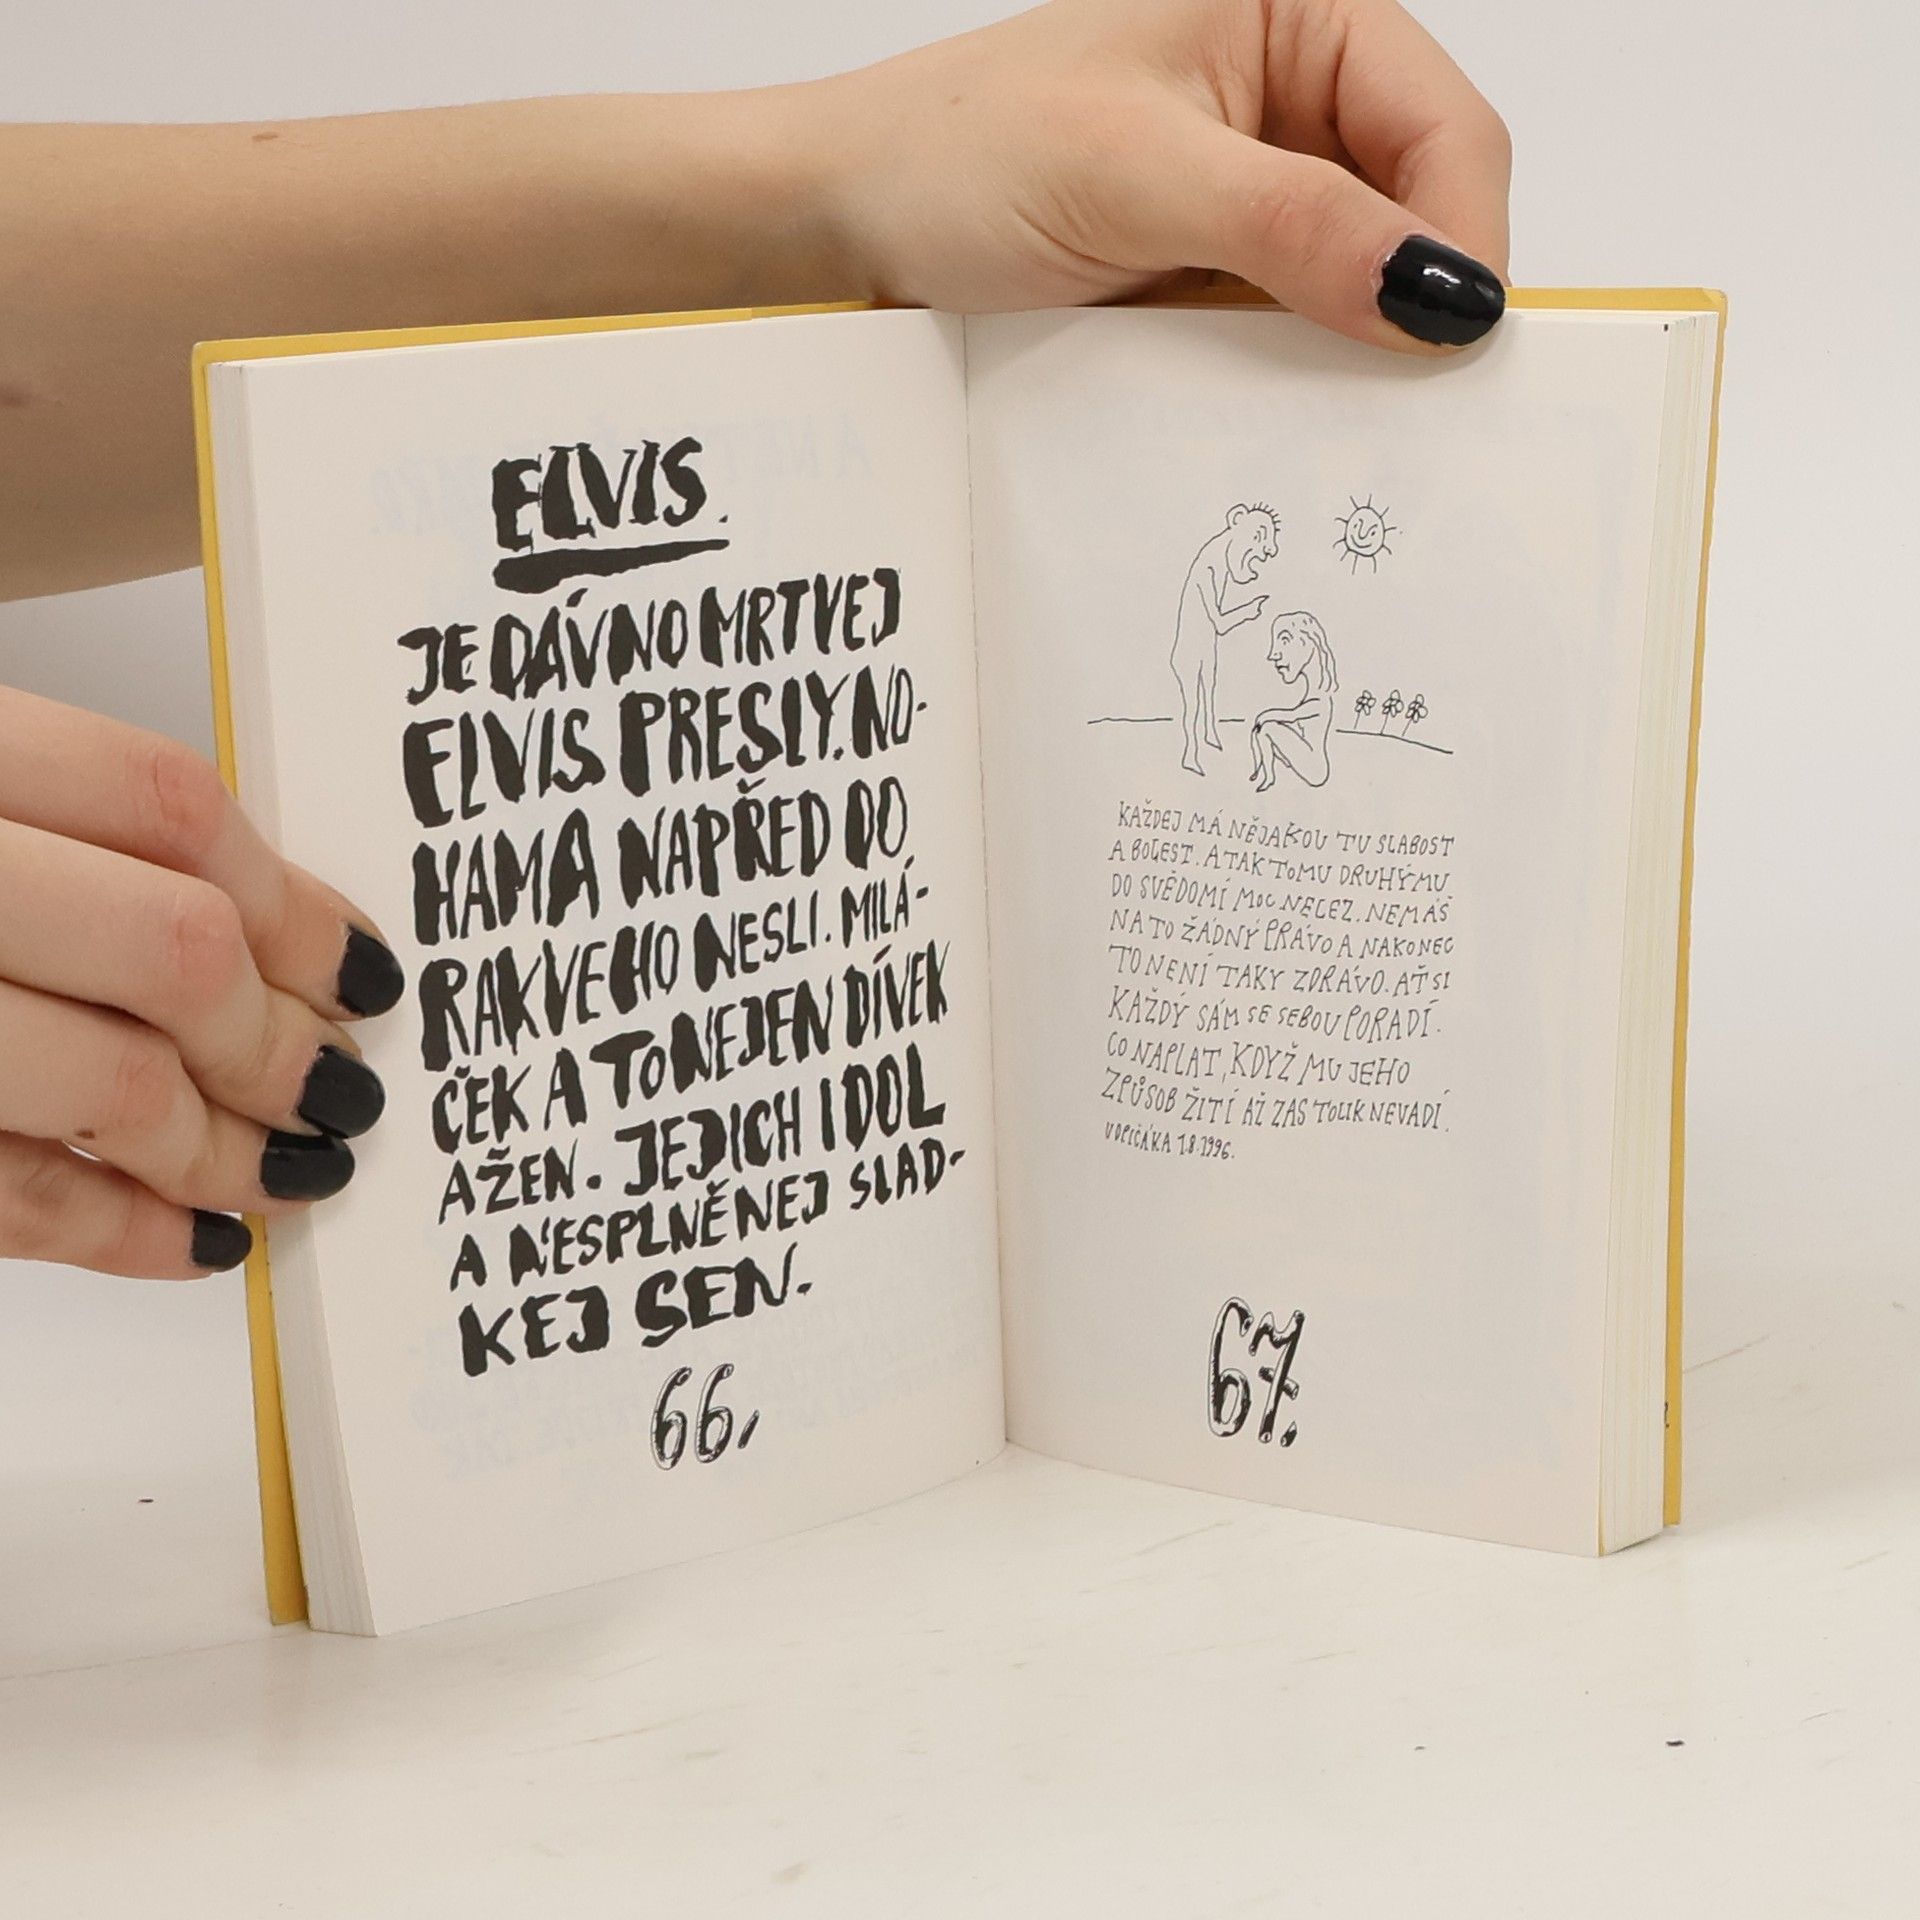 ELVIS.
JE DÁVNO MRTVEJ
ELVIS PRESLY. NO-
HAMA NAPŘED DO
RAKVE HO NESLI. MILÁ-
ČEK A TO NEJEN DÍVEK
A ŽEN. JEJICH IDOL
A NESPLNĚNEJ SLAD-
KEJ SEN.
66.
KAŽDEJ MÁ NĚJAKOU TU SLABOST
A BOLEST. A TAK TOMU DRUHÝMU
DO SVĚDOMÍ MOC NELEZ. NEMÁŠ
NA TO ŽÁDNÝ PRÁVO A NAKONEC
TO NENÍ TAKY ZDRÁVO. AŤ SI
KAŽDÝ SÁM SE SEBOU PORADÍ.
CO NAPLAT, KDYŽ MU JEHO
ZPŮSOB ŽITÍ AŽ ZAS TOLIK NEVADÍ.
U OPIČÁKA 1.8.1996.
67.